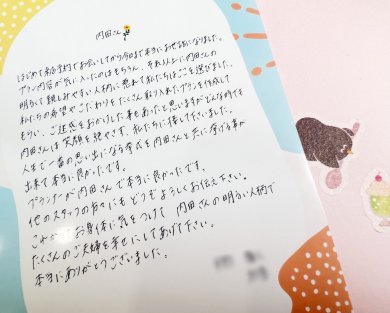 内田さん
はじめて来店予約でお会いしてから今日まで本当にお世話になりました。
プラン内容が気に入ったのはもちろん、それ以上に内田さんの
明るくて親しみやすい人柄に惹れて私たちはここを選びました。
私たちの希望やこだわりをたくさん取り入れたプランを作成して
もらい、ご迷惑をおかけした事もあったと思いますがどんな時でも
内田さんは笑顔を絶やさず、私たちに接して下さいました。
人生で一番の思い出になる挙式を内田さんと共に挙げる事が
出来て本当に良かったです。
プランナーが内田さんで本当に良かったです。
他のスタッフの方々にもどうぞよろしくお伝え下さい。
これからもお身体に気をつけて 内田さんの明るい人柄で
たくさんのご夫婦を幸せにしてあげて下さい。
本当にありがとうございました。